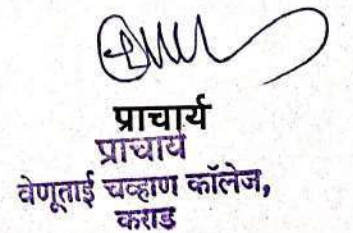 प्राचार्य
प्राचार्य
वेणूताई चव्हाण कॉलेज,
कराड